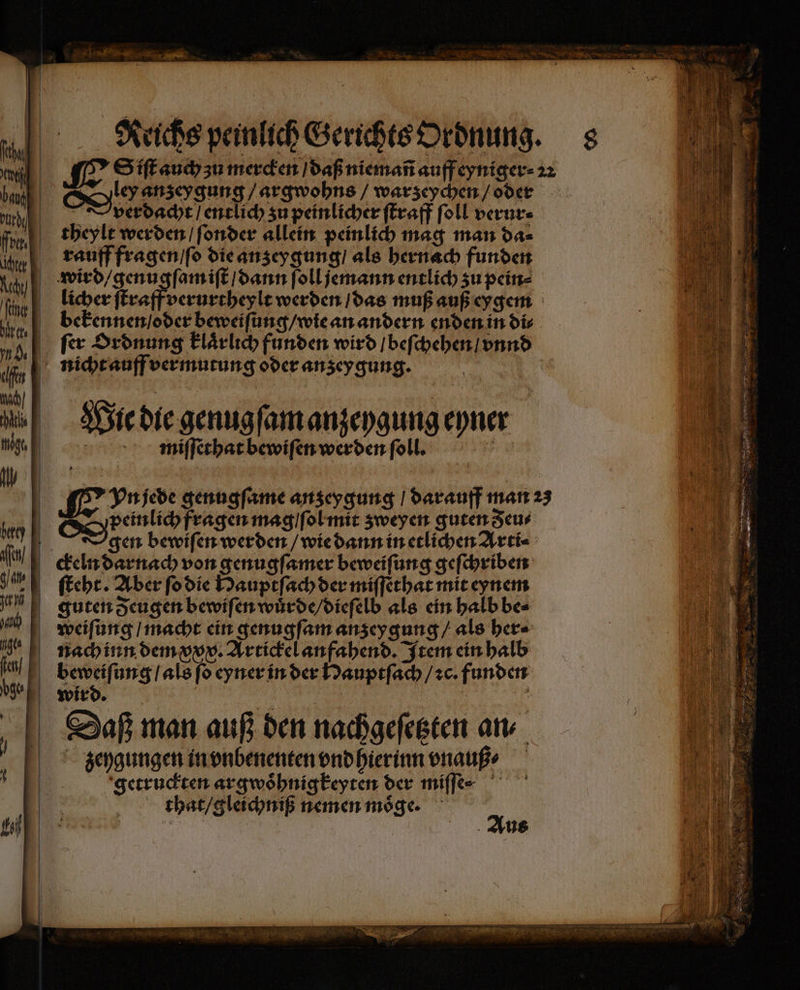 Reichs peinlich Gerichts Ordnung. 8
ES iſt auch zu mercken / daß niemañ auff eyniger- 22
ley anzeygung / argwohns / warzeychen / oder
verdacht / entlich zu peinlicher ſtraff ſoll verur-
theylt werden / ſonder allein peinlich mag man da-
rauff fragen / ſo die anzeygung / als hernach funden
wird / genugſam iſt / dann ſoll jemann entlich zu pein-
licher ſtraff verurtheylt werden / das muß auß eygem
bekennen / oder beweiſung / wie an andern enden in di-
ſer Ordnung klaͤrlich funden wird / beſchehen / vnnd
nicht auff vermutung oder anzeygung.
Wie die genugſam anzeygung eyner
miſſethat bewiſen werden ſoll.
EYn jede genugſame anzeygung / darauff man 23
peinlich fragen mag / ſol mit zweyen guten Zeu-
gen bewiſen werden / wie dann in etlichen Arti-
ckeln darnach von genugſamer beweiſung geſchriben
ſteht. Aber ſo die Hauptſach der miſſethat mit eynem
guten Zeugen bewiſen wuͤrde / dieſelb als ein halb be-
weiſung / macht ein genugſam anzeygung / als her-
nach inn dem xxx. Artickel anfahend. Item ein halb
beweiſung / als ſo eyner in der Hauptſach / ꝛc. funden
wird.
Daß man auß den nachgeſetzten an-
zeygungen in vnbenenten vnd hierinn vnauß-
getruckten argwoͤhnigkeyten der miſſe-
that / gleichniß nemen moͤge.
Aus